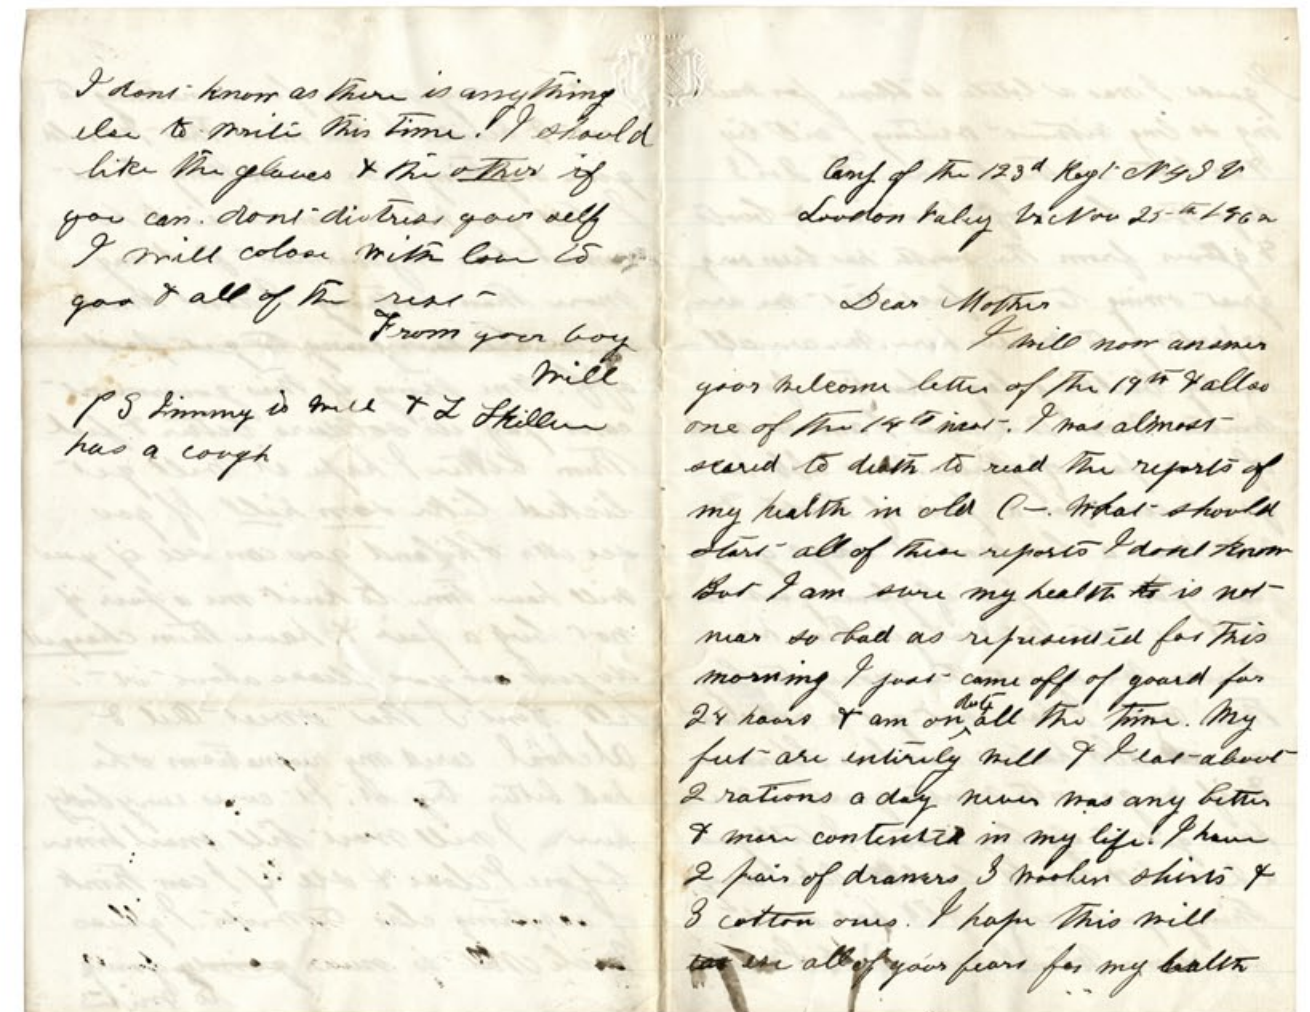 I dont know as there is anything
else to write this time. I should
like the gloves & the other if
you can. dont distress your self
I will colose with love to
you & all of the rest
From your boy
Will
P S Jimmy is well & L Skillen
has a cough
Camp of the 123d Regt N Y S V
Loudon Valey Va Nov 25th 1862
Dear Mother
I will now answer
your welcome letter of the 19th & allso
one of the 14th inst. I was almost
scared to death to read the reports of
my health in old C—. What should
start all of these reports I dont know
But I am sure my health is not
near so bad as represented for this
morning I just came off of guard for
24 hours & am on duty all the time. My
feet are entirely well & I eat about
2 rations a day never was any better
& more contented in my life. I have
2 pair of drawers 3 woolen shirts &
3 cotton ones. I hope this will
all of your fears for my health